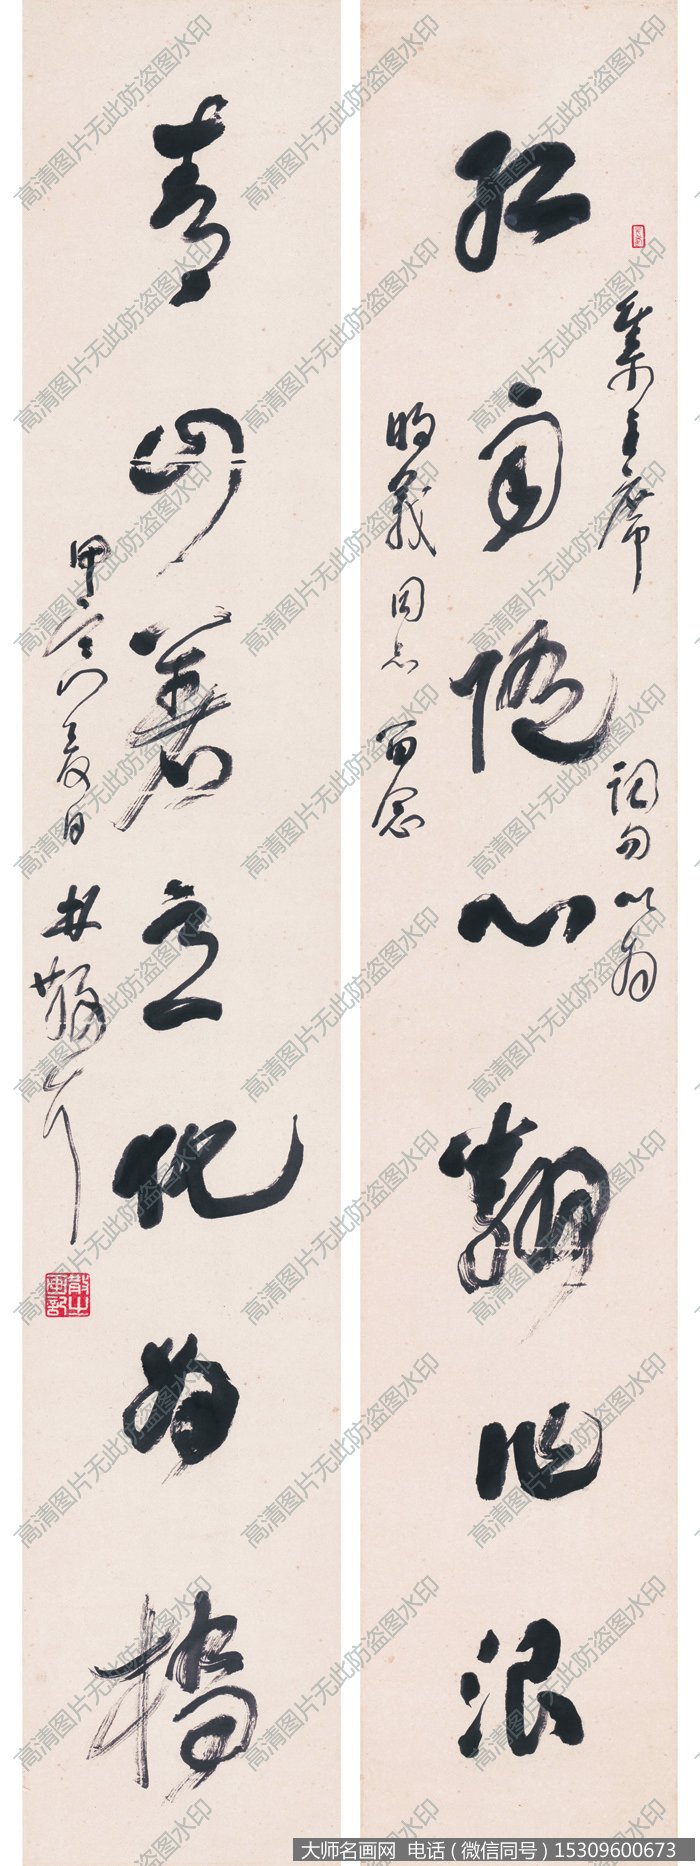 集主席詞句以为
红雨随心翻作浪
義同志留念
青山著意化为橋
甲寅夏日 林散耳
高清图片无此防盗图水印
大师名画网 电话（微信同号）15309600673